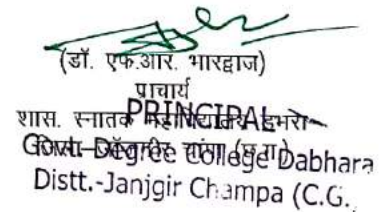 (डॉ. एफ.आर. भारद्वाज)
प्राचार्य
PRINCIPAL
शास. स्नातक महाविद्यालय डभरा
Govt. Degree College Dabhara
जिला-जाँजगीर चांपा (छ.ग.)
Distt.-Janjgir Champa (C.G.